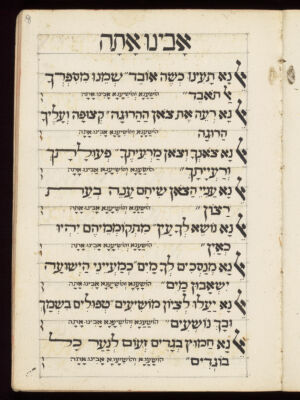 אָבִינוּ אָתָּה
אָנָּא תָּעִינוּ כְּשֶׂה אוֹבֵד שְׁמֵנוּ מִסִּפְרְךָ
אַל תְּאַבֵּד הוֹשַׁעֲנָא וְהוֹשִׁיעֲנָא אָבִינוּ אָתָּה
אָנָּא רְעֵה אֶת צֹאן הַהֲרֵגָה קְצוּפָה וְעָלֶיךָ
הֲרוּגָה הוֹשַׁעֲנָא וְהוֹשִׁיעֲנָא אָבִינוּ אָתָּה
אָנָּא צֹאנְךָ וְצֹאן מַרְעִיתֶךָ פְּעֻלָּתְךָ
וְרַעְיָתֶךָ הוֹשַׁעֲנָא וְהוֹשִׁיעֲנָא אָבִינוּ אָתָּה
אָנָּא עֲנִיֵּי הַצֹּאן שִׂיחָם עֲנֵה בְּעֵת
רָצוֹן הוֹשַׁעֲנָא וְהוֹשִׁיעֲנָא אָבִינוּ אָתָּה
אָנָּא נוֹשְׂאֵי לְךָ עַיִן מִתְקוֹמְמֵיהֶם יִהְיוּ
כְאַיִן הוֹשַׁעֲנָא וְהוֹשִׁיעֲנָא אָבִינוּ אָתָּה
אָנָּא מְנַסְּכִים לְךָ מַיִם כְּמִמַּעַיְנֵי הַיְשׁוּעָה
יִשְׁאֲבוּן מַיִם הוֹשַׁעֲנָא וְהוֹשִׁיעֲנָא אָבִינוּ אָתָּה
אָנָּא יַעֲלוּ לְצִיּוֹן מוֹשִׁיעִים טְפוּלִים בְּשִׁמְךָ
וּבְךָ נוֹשָׁעִים הוֹשַׁעֲנָא וְהוֹשִׁיעֲנָא אָבִינוּ אָתָּה
אָנָּא חֲמוּץ בְּגָדִים זְעוֹם לְנַעֵר כָּל
בּוֹגְדִים הוֹשַׁעֲנָא וְהוֹשִׁיעֲנָא אָבִינוּ אָתָּה